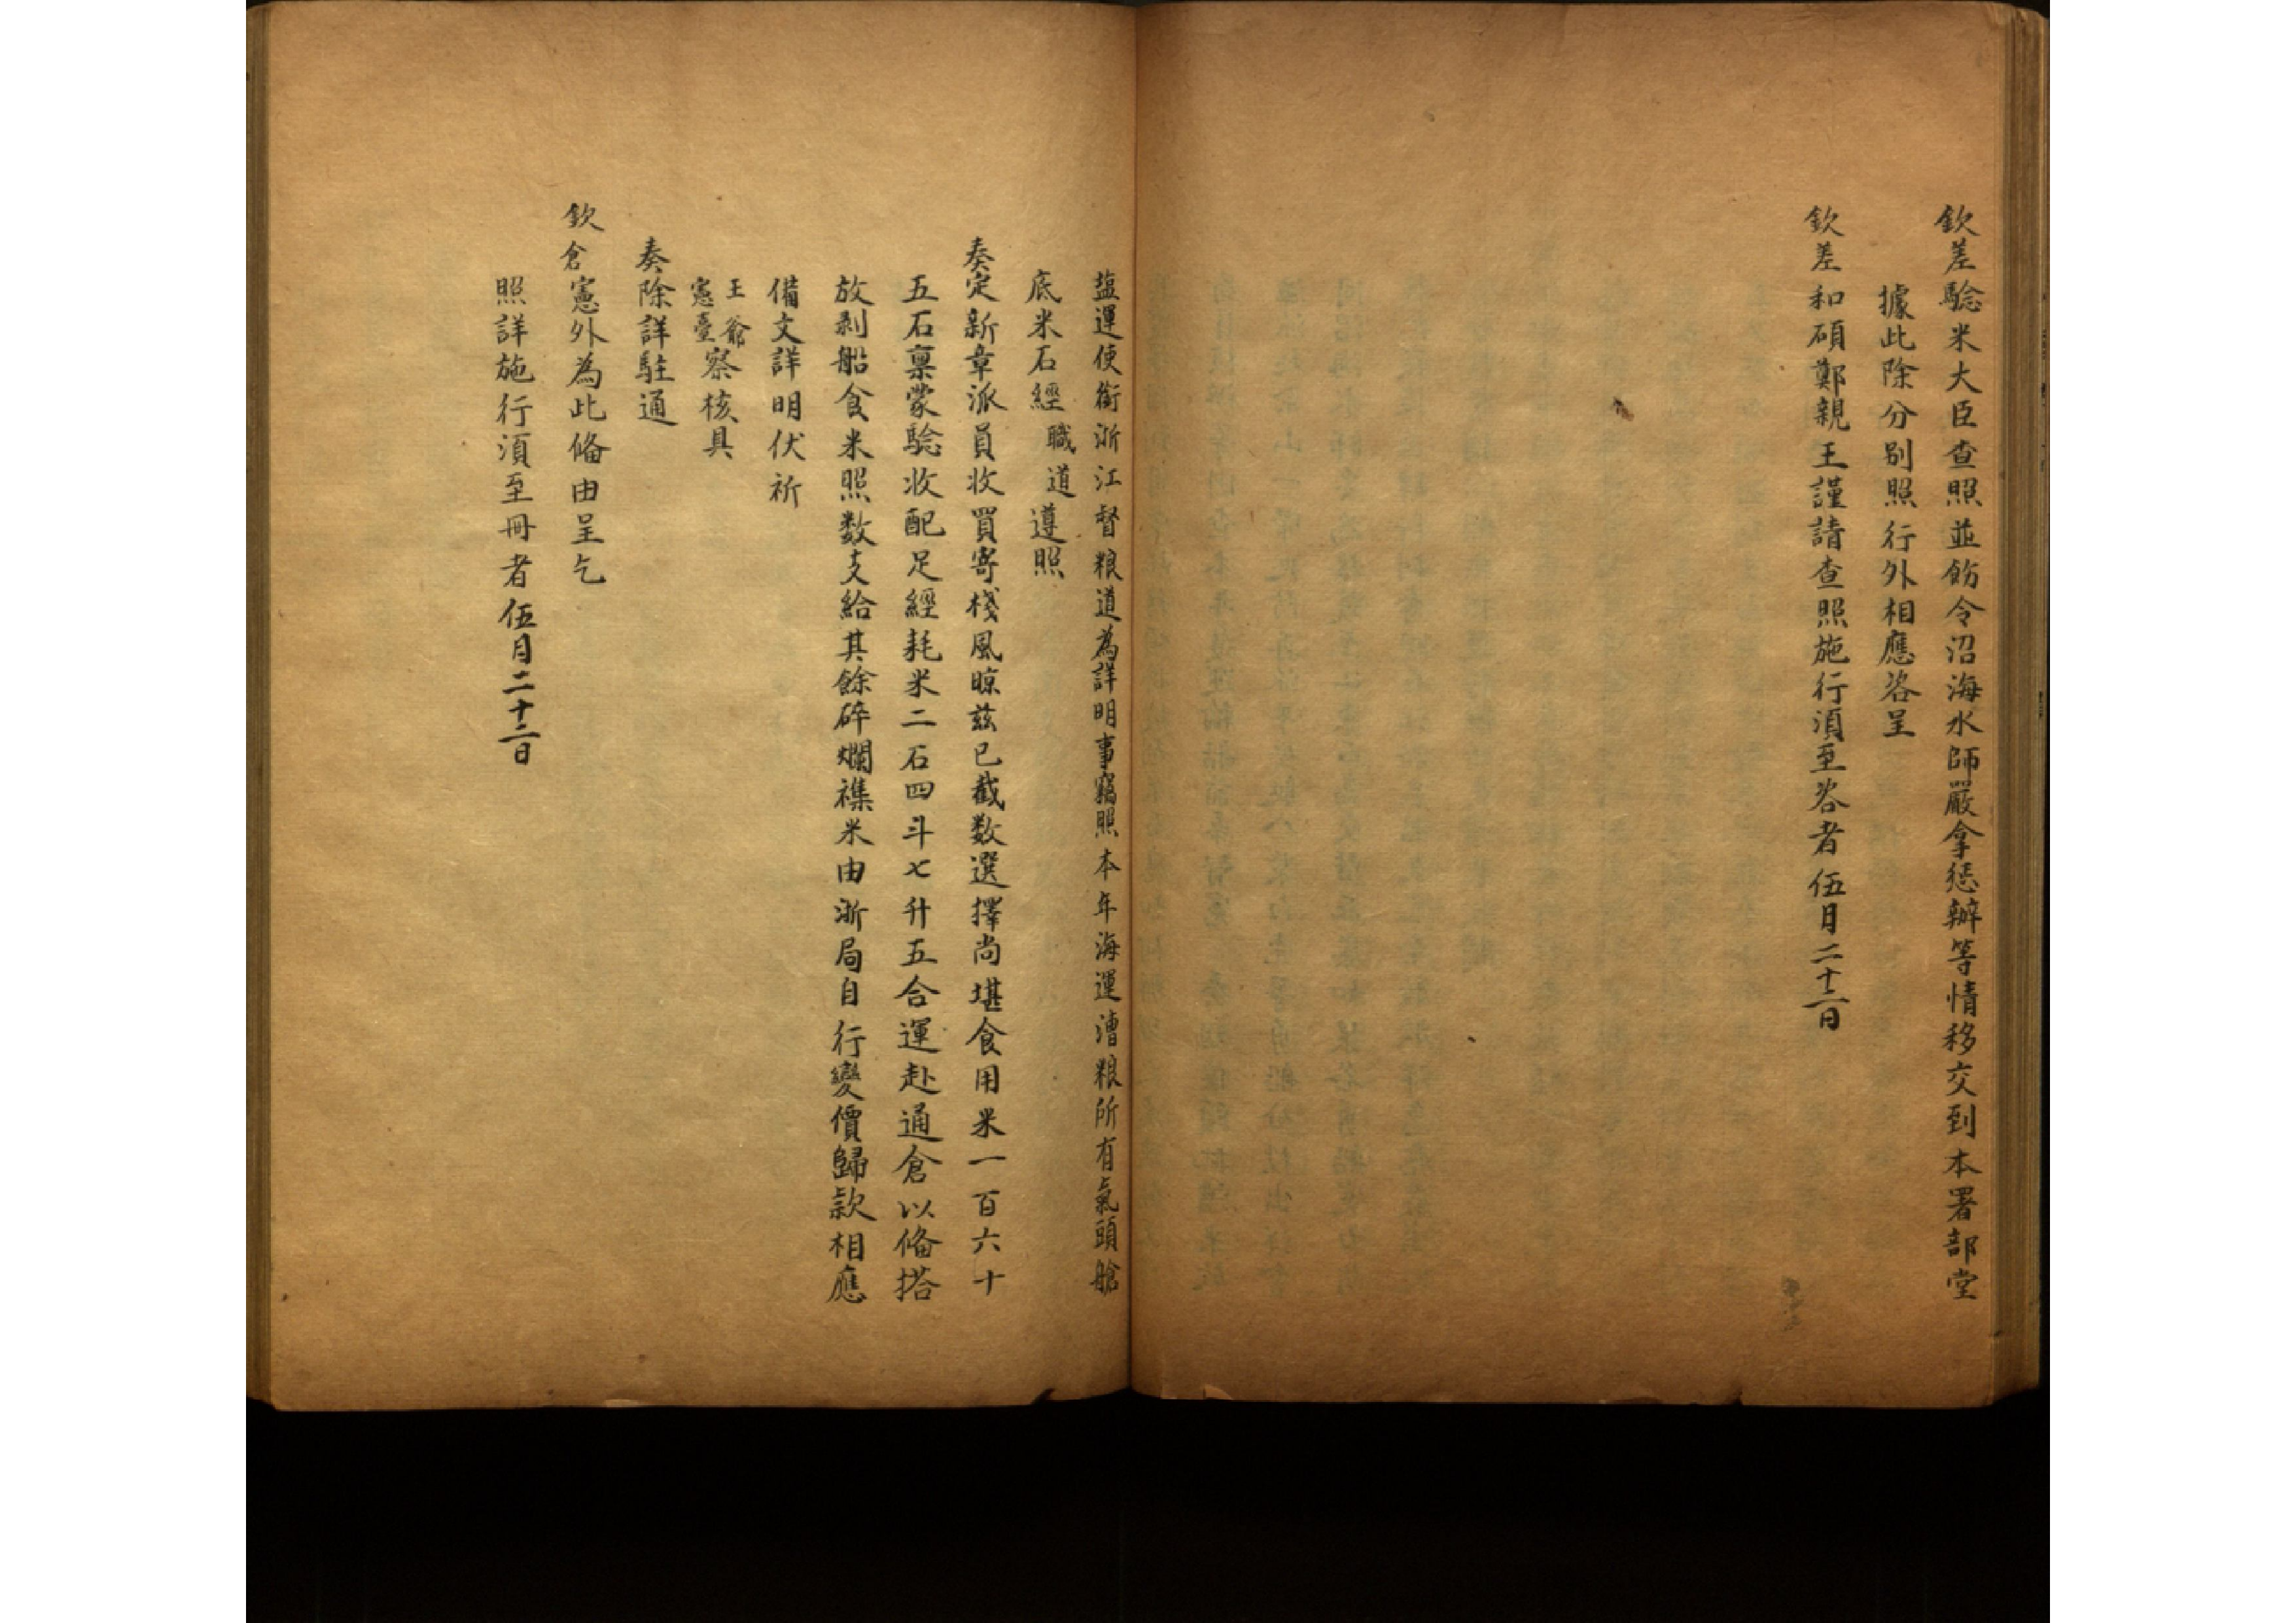 欽差驗米大臣查照並飭令沿海水師嚴拿懲辦等情移交到本署部堂
據此除分别照行外相應咨呈
欽差和碩鄭親王謹請查照施行須至咨者伍月二十二日
塩運使銜浙江督粮道為詳明事竊照本年海運漕粮所有氣頭艙
底米石經職道遵照
奏定新章派員收買寄棧風晾兹已截数選擇尚堪食用米一百六十
五石稟蒙驗收配足經耗米二石四斗七升五合運赴通倉以俻搭
放剥船食米照数支給其餘碎爛襍米由浙局自行變價歸款相應
備文詳明伏祈
王爺
憲臺察核具
奏除詳駐通
欽倉憲外為此俻由呈乞
照詳施行須至冊者伍月二十二日